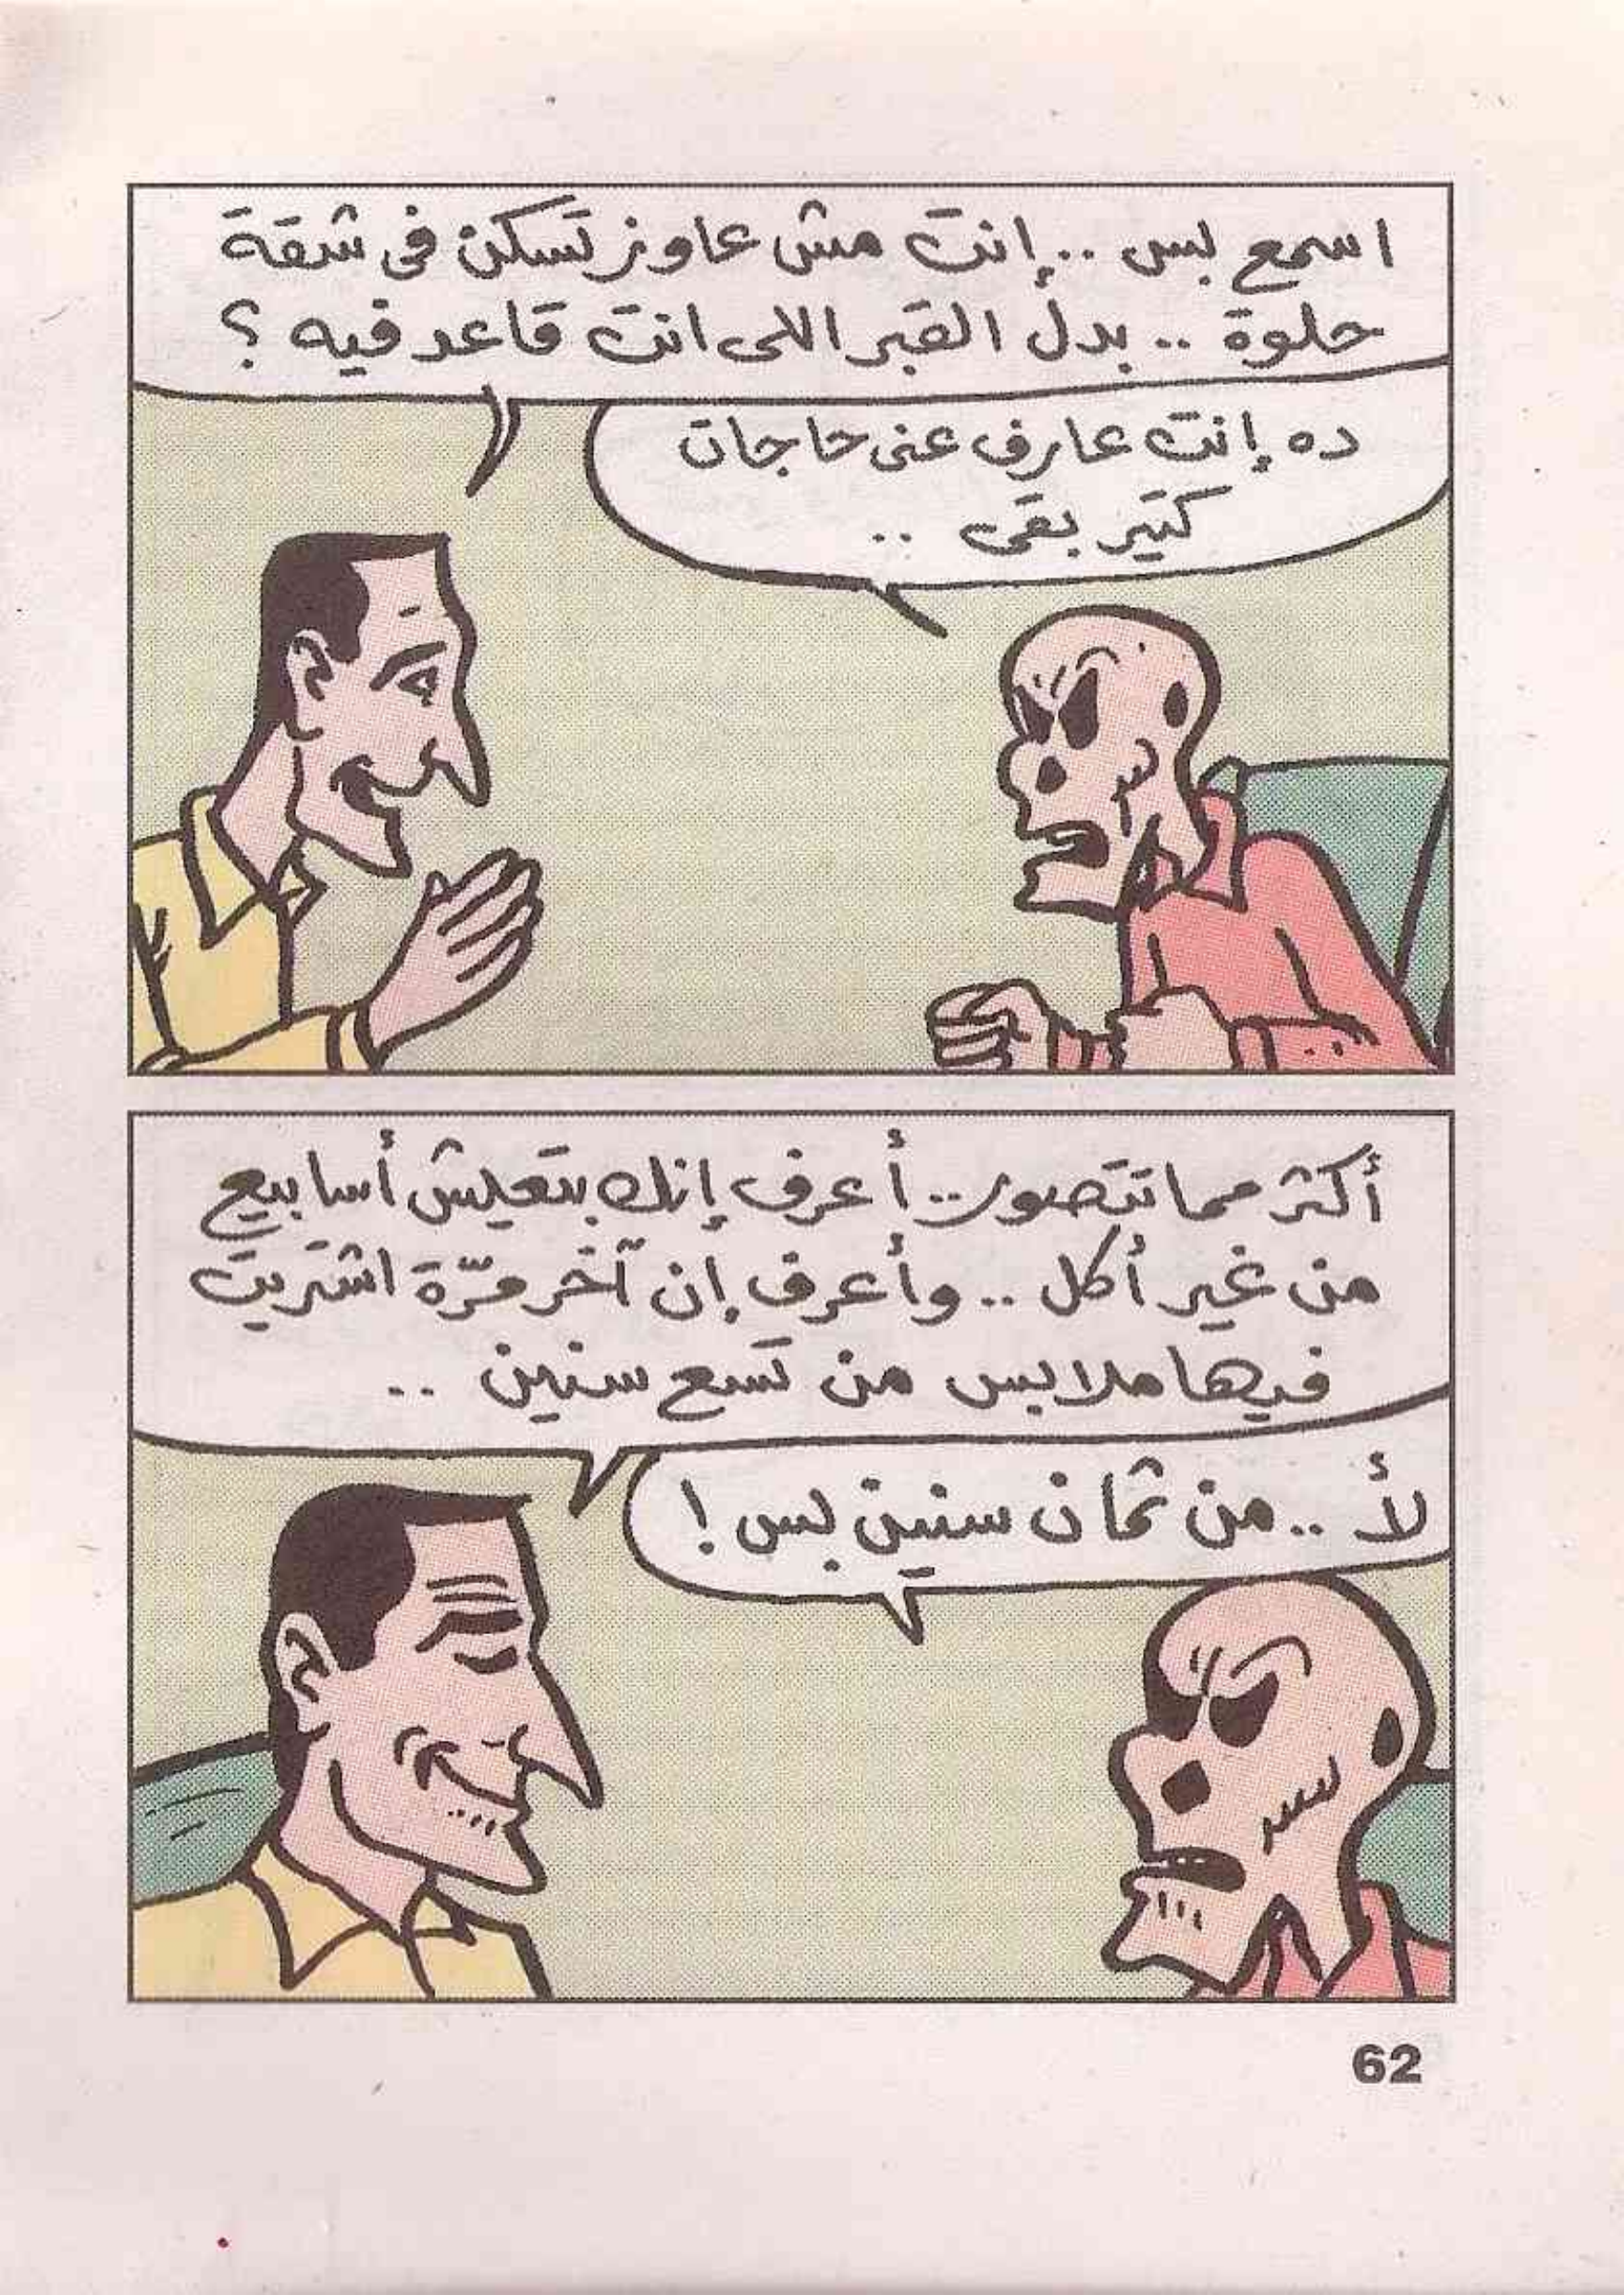 اسمع بس .. إنت مش عاوز تسكن فى شقة
حلوة .. بدل القبر اللى انت قاعد فيه ؟
ده إنت عارف عنى حاجات
كتير بقى ..
أكثر مما تتصور .. أعرف إنك بتعيش أسابيع
من غير أكل .. وأعرف إن آخر مرّة اشتريت
فيها ملابس من تسع سنين ..
لأ .. من ثمان سنين بس !
62